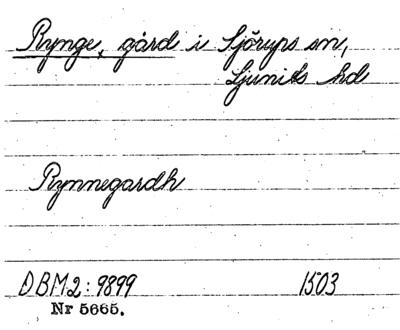 Rynge, gård i Sjörups sn,
Ljunits hd
Rynnegardh
DBM2: 9899 1503
Nr 5665.